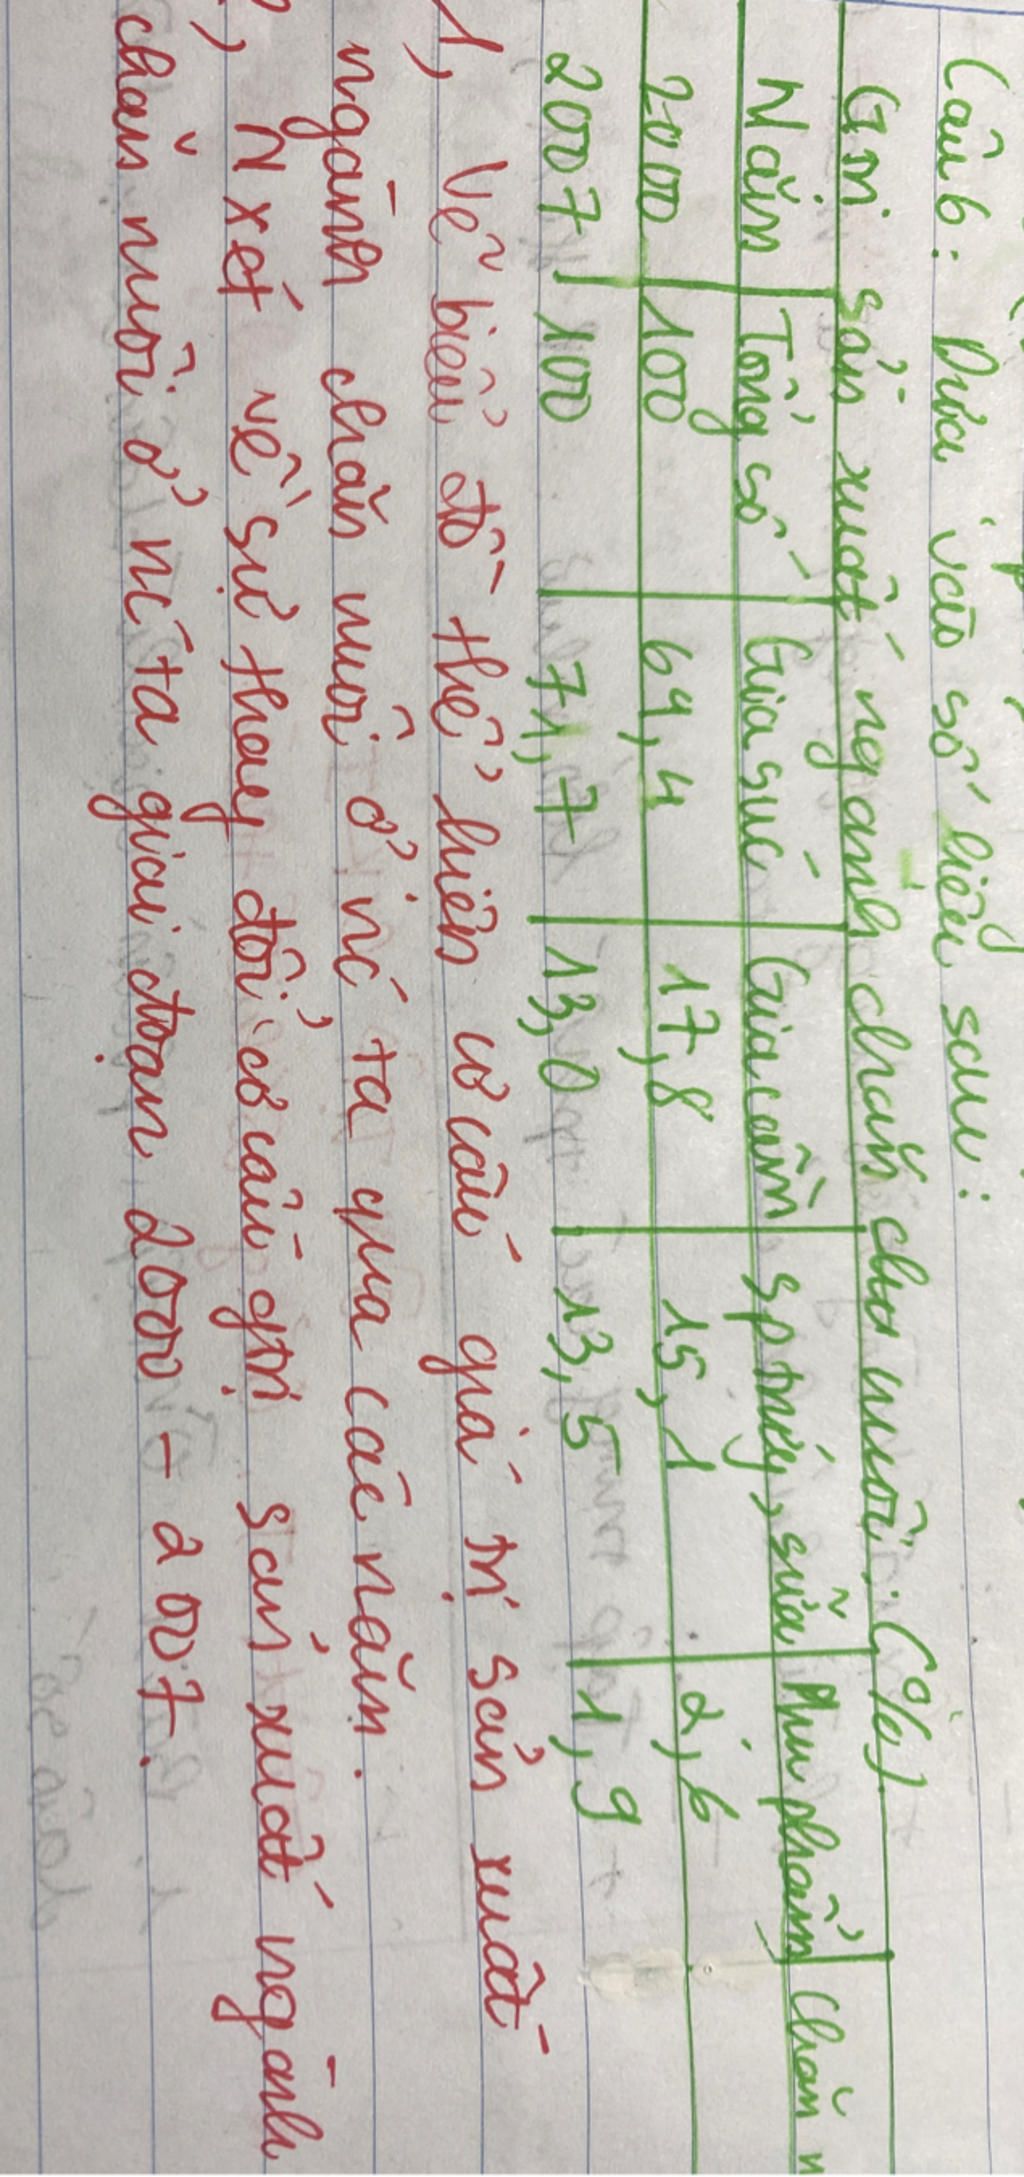 Câu 6: Dựa vào số liệu sau:
Gtrị sản xuất ngành chăn chu nuôi. (%)
Năm Tổng số Gia súc Gia cầm sp trứng, sữa Phụ phẩm chăn n
2000 100 64,4 17,8 15,1 2,6
2007 100 71,7 13,0 13,5 1,9
1, Vẽ biểu đồ thể hiện cơ cấu giá trị sản xuất
ngành chăn nuôi ở nc ta qua các năm.
, N xét về sự thay đổi cơ cấu gtrị sản xuất ngành
chăn nuôi ở nc ta giai đoạn 2000 - 2007.